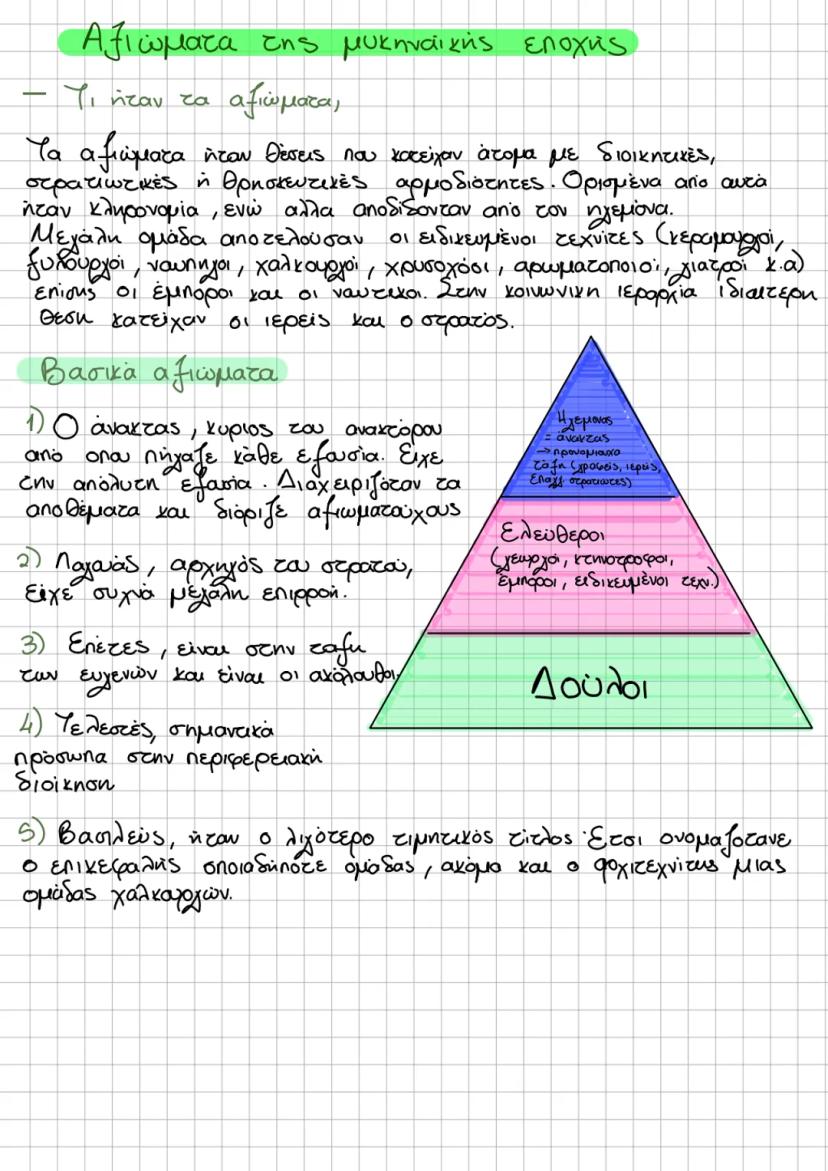 Αξιώματα της μυκηναϊκής εποχής
— Τι ήταν τα αξιώματα,
Τα αξιώματα ήταν θέσεις που κατείχαν άτομα με διοικητικές,
στρατιωτικές ή θρησκευτικές αρμοδιότητες. Ορισμένα από αυτά
ήταν κληρονομία, ενώ αλλα αποδίδονταν από τον ηγεμόνα.
Μεγάλη ομάδα αποτελούσαν οι ειδικευμένοι τεχνίτες (κεραμουργοί,
ξυλουργοί, ναυπηγοί, χαλκουργοί, χρυσοχόοι, αρωματοποιοί, γιατροί κ.α)
επίσης οι έμποροι και οι ναυτικοι. Στην κοινωνικη ιεραρχία ιδιαιτερη
θεση κατείχαν οι ιερείς και ο στρατός.
Βασικά αξιώματα
1) Ο άνακτας, κυριος του ανακτόρου
από οπου πήγαζε κάθε εξουσία. Είχε
την απόλυτη εξουσία. Διαχειριζόταν τα
αποθέματα και διόριζε αξιωματούχους
2) Λαγαυάς, αρχηγός του στρατού,
είχε συχνά μεγάλη επιρροή.
3) Επέτες, είναι στην ταξη
των ευγενών και είναι οι ακόλουθοι.
4) Τελεστές, σημαντικά
πρόσωπα στην περιφερειακή
διοίκηση
5) Βασιλεύς, ήταν ο λιγότερο τιμητικός τίτλος. Έτσι ονομαζοτανε
ο επικεφαλής οποιαδήποτε ομάδας, ακόμα και ο αρχιτεχνίτης μιας
ομάδας χαλκουργών.
Ηγεμονας
= άνακτας
→ προνομιουχα
τάξη (γραφείς, ιερείς,
επαγγ. στρατιωτες)
Ελεύθεροι
(γεωργοί, κτηνοτροφοι,
έμποροι, ειδικευμένοι τεχν.)
Δούλοι